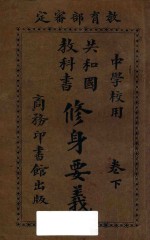 教育部審定
中學校用
共和國教科書
修身要義
卷下
商務印書館出版